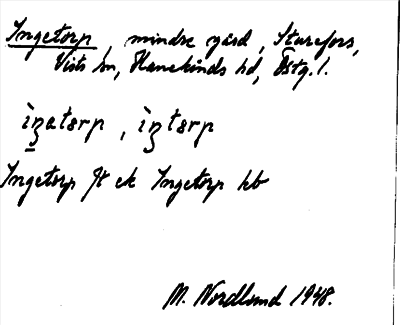 Ingetorp, mindre gård, Sturefors,
Vists sn, Hanekinds hd, Östg. l.
ìŋatərp, ìŋtərp
Ingetorp Jt ek Ingetorp hb
M. Nordlund 1948.